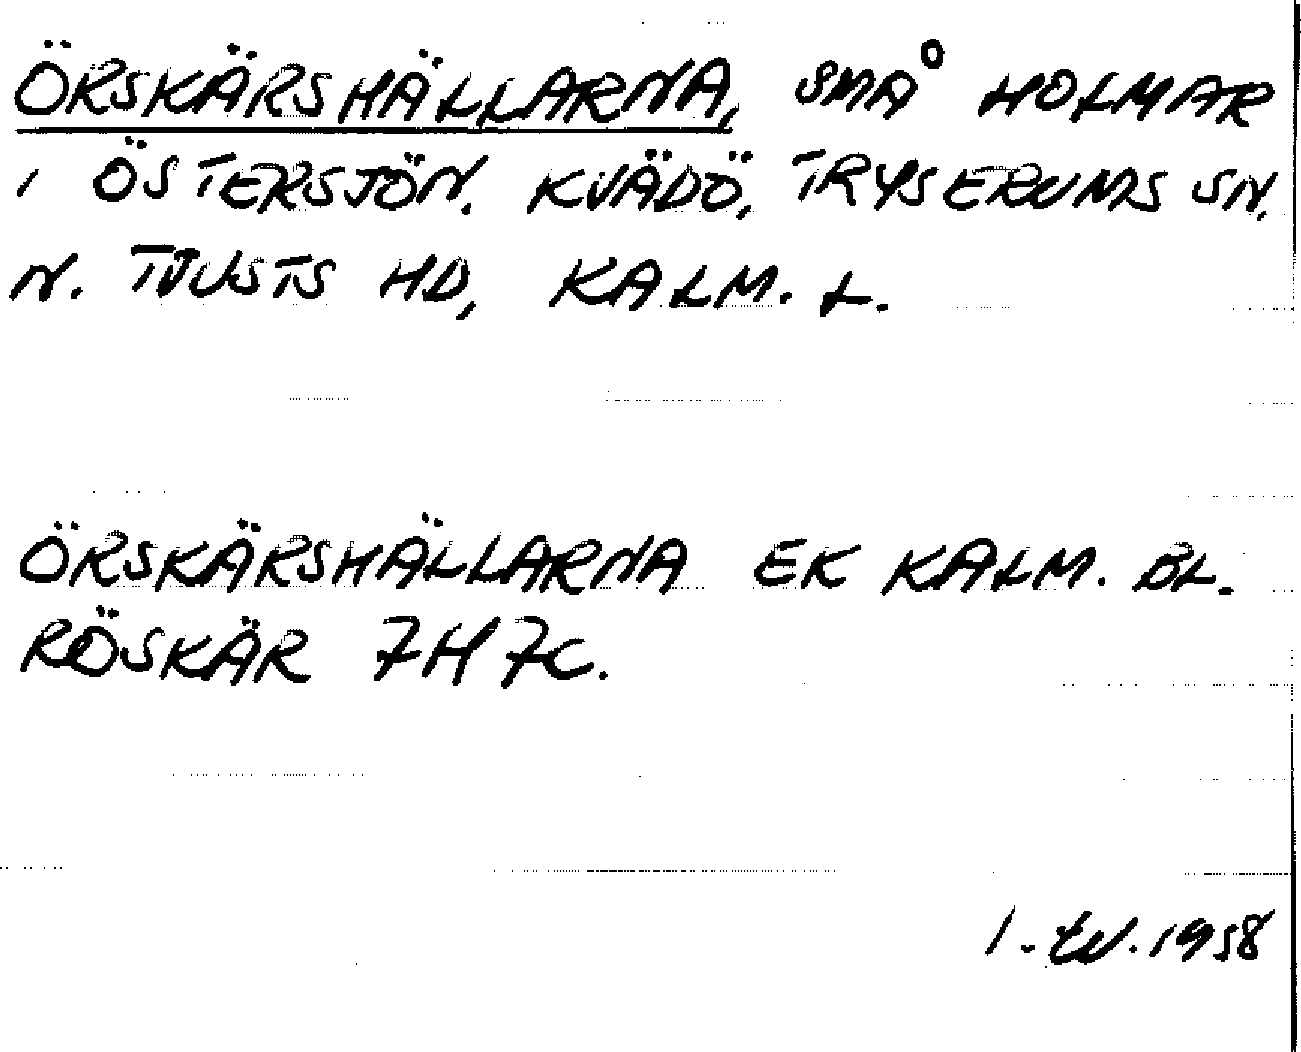 ÖRSKÄRSHÄLLARNA, SMÅ HOLMAR
I ÖSTERSJÖN. KVÄDÖ, TRYSERUMS SN,
N. TJUSTS HD, KALM. L.
ÖRSKÄRSHÄLLARNA EK KALM. BL.
RÖSKÄR 7H 7C.
1958